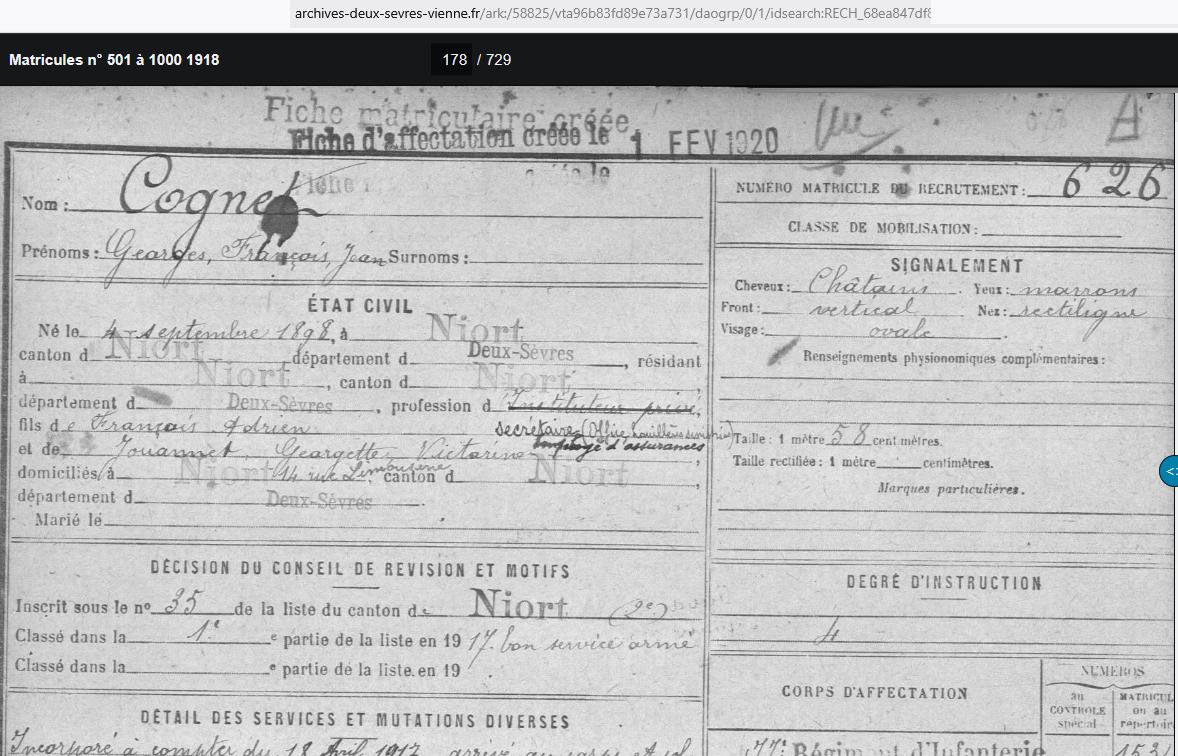 archives-deux-sevres-vienne.fr/ark:/58825/vta96b83fd89e73a731/daogrp/0/1/idsearch:RECH_68ea847df
Matricules n° 501 à 1000 1918
178 / 729
Fiche matriculaire créée
Fiche d'affectation créée le 1 FEV 1920
A
Nom : Cognet
Prénoms : Georges, François, Jean Surnoms :
ÉTAT CIVIL
Né le 4 septembre 1898, à Niort
canton d Niort département d Deux-Sèvres, résidant
à Niort, canton d Niort,
département d Deux-Sèvres, profession d Instituteur privé,
fils de François Adrien secrétaire (Office houillères
et de Jouannet, Georgette Victorine employé d'assurances,
domiciliés à Niort 14 rue Limousine, canton d Niort,
département d Deux-Sèvres
Marié le
DÉCISION DU CONSEIL DE REVISION ET MOTIFS
Inscrit sous le n° 35 de la liste du canton de Niort (2e)
Classé dans la 1e e partie de la liste en 1917. bon service armé
Classé dans la e partie de la liste en 19
DÉTAIL DES SERVICES ET MUTATIONS DIVERSES
Incorporé à compter du 18 Avril 1917 arrivé au corps et
NUMÉRO MATRICULE DU RECRUTEMENT : 626
CLASSE DE MOBILISATION :
SIGNALEMENT
Cheveux : Châtains Yeux : marrons
Front : vertical Nez : rectiligne
Visage : ovale
Renseignements physionomiques complémentaires :
Taille : 1 mètre 58 centimètres.
Taille rectifiée : 1 mètre centimètres.
Marques particulières.
DEGRÉ D'INSTRUCTION
4
CORPS D'AFFECTATION
NUMÉROS
au CONTROLE spécial
MATRICUL ou au répertoir
77e Régiment d'Infanterie